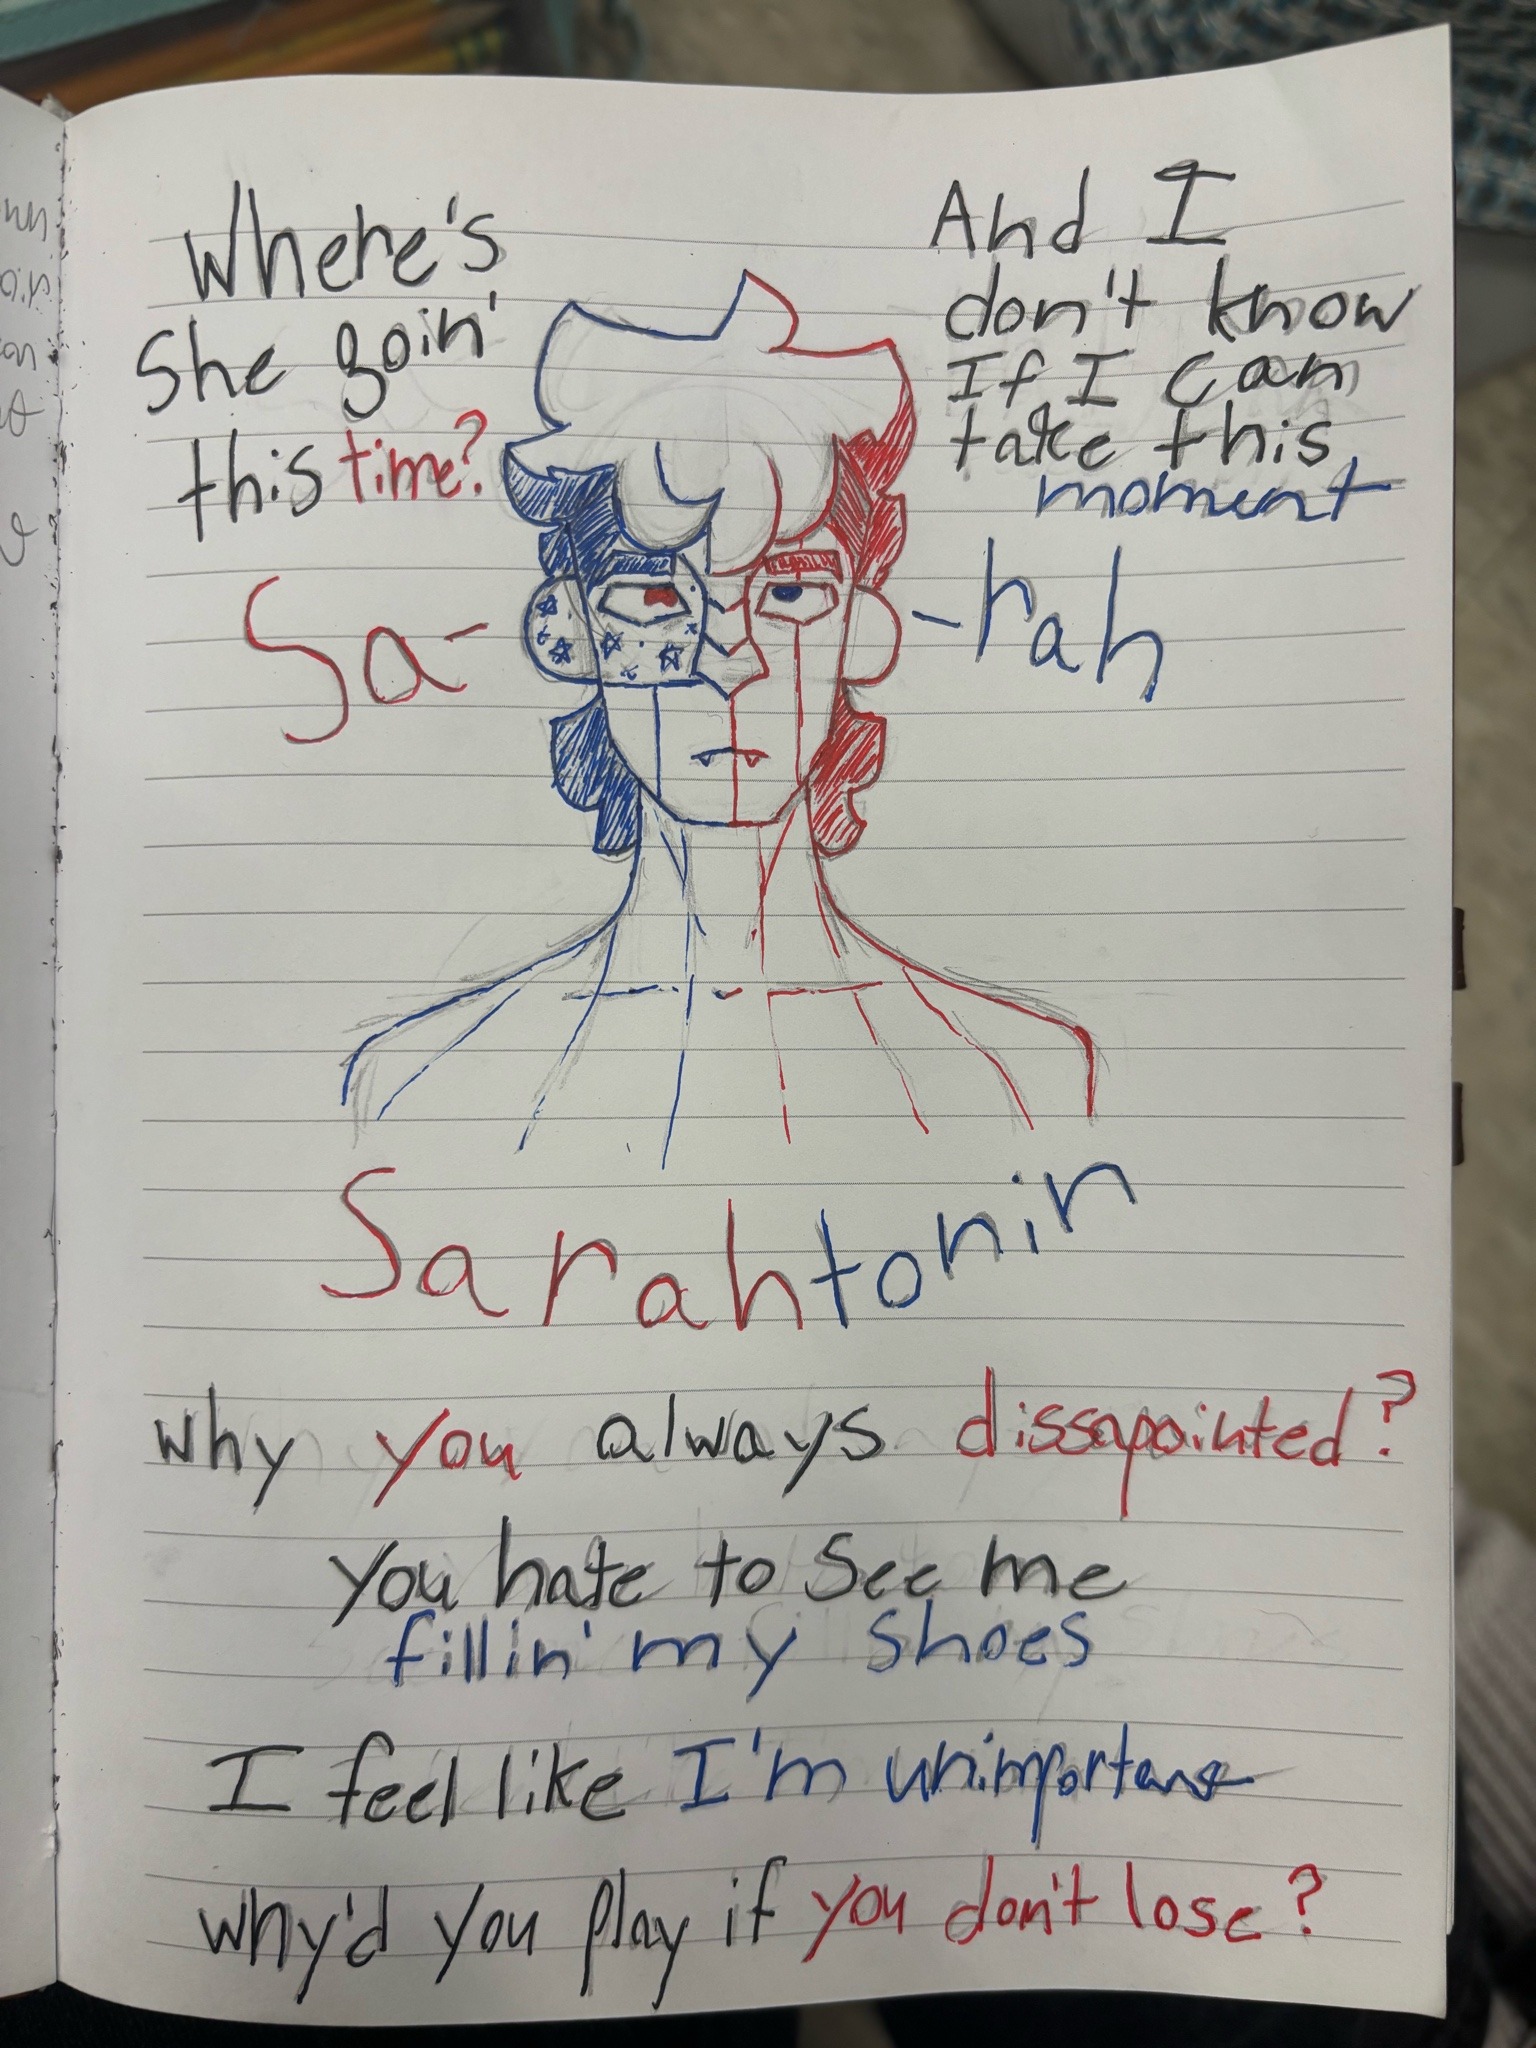 Where's
She goin'
this time?
And I
don't know
If I can
take this
moment
Sa-
-rah
Sarahtonin
why you always dissapointed?
you hate to see me
fillin' my shoes
I feel like I'm unimportant
why'd you play if you don't lose?